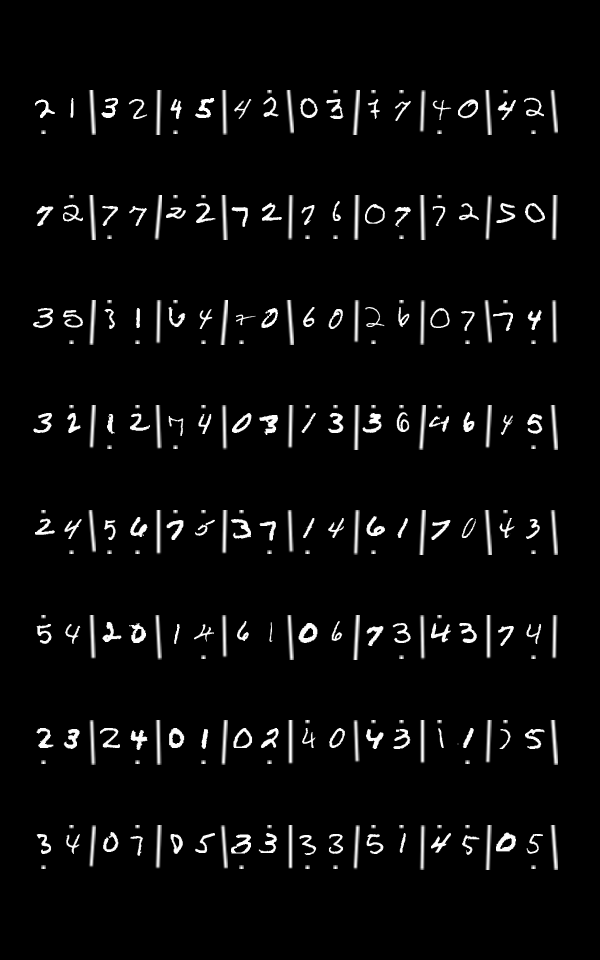 2 1 | 3 2 | 4 5 | 4 2 | 0 3 | 7 7 | 4 0 | 4 2 |
7 2 | 7 7 | 2 2 | 7 2 | 7 6 | 0 7 | 7 2 | 5 0 |
3 5 | 3 1 | 6 4 | 7 0 | 6 0 | 2 6 | 0 7 | 7 4 |
3 2 | 1 2 | 7 4 | 0 3 | 1 3 | 3 6 | 4 6 | 4 5 |
2 4 | 5 6 | 7 5 | 3 7 | 1 4 | 6 1 | 7 0 | 4 3 |
5 4 | 2 0 | 1 4 | 6 1 | 0 6 | 7 3 | 4 3 | 7 4 |
2 3 | 2 4 | 0 1 | 0 2 | 4 0 | 4 3 | 1 1 | 7 5 |
3 4 | 0 7 | 0 5 | 3 3 | 3 3 | 5 1 | 4 5 | 0 5 |